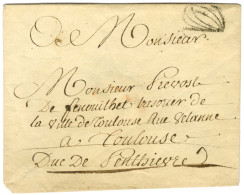 De Monsieur
Monsieur Prevost
De fenouilhet tresorier de
la ville de Toulouse Rue Velanne
a Toulouse
Duc De Penthievre